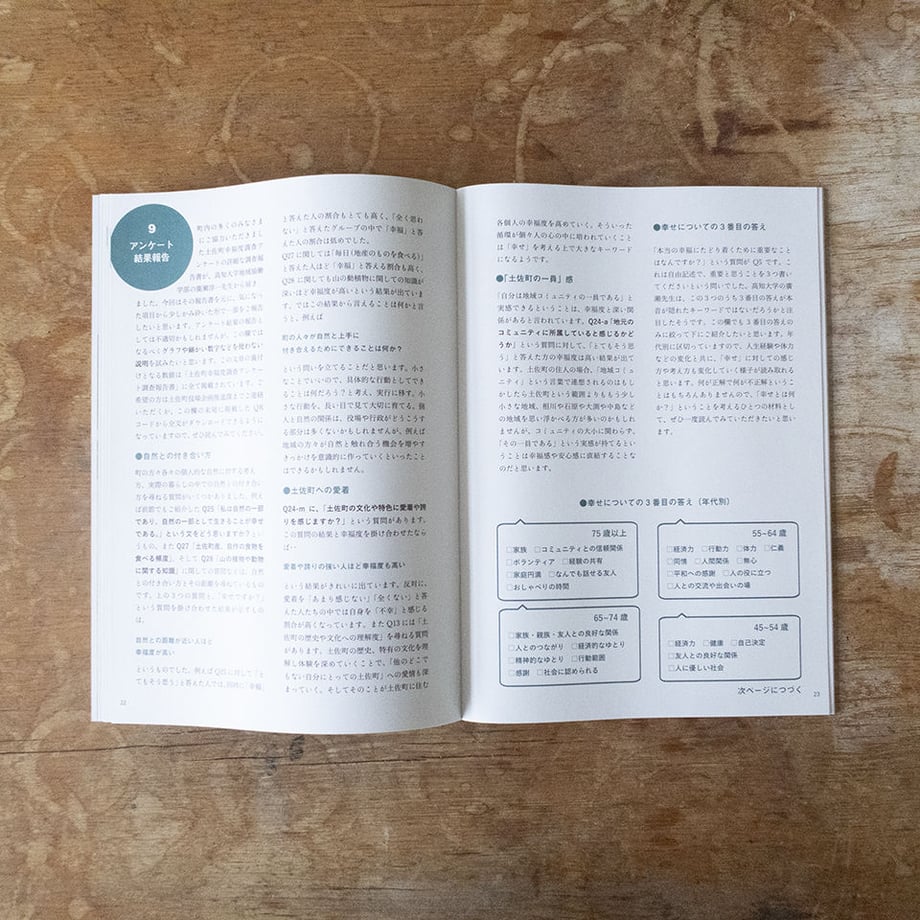 9
アンケート
結果報告
町内の多くのみなさま
にご協力いただきまし
た土佐町幸福度調査ア
ンケートの詳細な調査報
告書が、高知大学地域協働
学部の廣瀬淳一先生から届き
ました。今回はその報告書を元に、気になっ
た項目から少しかみ砕いた形で一部をご報告
したいと思います。アンケート結果の報告と
しては不適切かもしれませんが、この欄では
なるべくグラフや細かい数字などを使わない
説明を試みたいと思います。この文章の裏付
けとなる数値は「土佐町幸福度調査アンケー
ト調査報告書」に全て掲載されています。ご
希望の方は土佐町役場企画推進課までご連絡
いただくか、この欄の末尾に掲載した QR
コードから全文がダウンロードできるように
なっていますので、ぜひ読んでみてください。
●自然との付き合い方
町の方々各々の個人的な自然に対する考え
方、実際の暮らしの中での自然との付き合い
方を尋ねる質問がいくつかありました。例え
ば前節でもご紹介した Q25「私は自然の一部
であり、自然の一部として生きることが幸せ
である。」という文をどう思いますか?とい
うもの。また Q27「土佐町産、自作の食物を
食べる頻度」、そして Q28「山の植物や動物
に関する知識」に関しての質問などは、自然
との付き合い方とその距離を尋ねているもの
です。上の3つの質問と、「幸せですか?」
という質問を掛け合わせた結果が示すもの
は、
自然との距離が近い人ほど
幸福度が高い
というものでした。例えば Q25 に対して「と
てもそう思う」と答えた人では、同時に「幸福」
22
と答えた人の割合もとても高く、「全く思わ
ない」と答えたグループの中で「幸福」と答
えた人の割合は低めでした。
Q27 に関しては「毎日(地産のものを食べる)」
と答えた人ほど「幸福」と答える割合も高く、
Q28 に関しても山の動植物に関しての知識が
深いほど幸福度が高いという結果が出ていま
す。ではこの結果から言えることは何かと言
うと、例えば
町の人々が自然と上手に
付き合えるためにできることは何か?
という問いを立てることだと思います。小さ
なことでいいので、具体的な行動としてでき
ることは何だろう?と考え、実行に移す。小
さな行動を、長い目で見て大切に育てる。個
人と自然の関係は、役場や行政がどうこうす
る部分は多くないかもしれませんが、例えば
地域の方々が自然と触れ合う機会を増やす
きっかけを意識的に作っていくといったこと
はできるかもしれません。
●土佐町への愛着
Q24-m に、「土佐町の文化や特色に愛着や誇
りを感じますか?」という質問があります。
この質問の結果と幸福度を掛け合わせたなら
ば・・
愛着や誇りの強い人ほど幸福度も高い
という結果がきれいに出ています。反対に、
愛着を「あまり感じない」「全くない」と答
えた人たちの中では自身を「不幸」と感じる
割合が高くなっています。また Q13 には「土
佐町の歴史や文化への理解度」を尋ねる質問
があります。土佐町の歴史、特有の文化を理
解し体験を深めていくことで、「他のどこで
もない自分にとっての土佐町」への愛情も深
まっていく。そしてそのことが土佐町に住む
各個人の幸福度を高めていく。そういった
循環が個々人の心の中に培われていくこと
は「幸せ」を考える上で大きなキーワード
になるようです。
●「土佐町の一員」感
「自分は地域コミュニティの一員である」と
実感できるということは、幸福度と深い関
係があると言われています。Q24-a「地元の
コミュニティに所属していると感じるかど
うか」という質問に対して、「とてもそう思
う」と答えた方の幸福度は高い結果が出て
います。土佐町の住人の場合、「地域コミュ
ニティ」という言葉で連想されるのはもし
かしたら土佐町という範囲よりももう少し
小さな地域、相川や石原や大渕や中島など
の地域を思い浮かべる方が多いのかもしれ
ませんが、コミュニティの大小に関わらず、
「その一員である」という実感が持てるとい
うことは幸福感や安心感に直結することな
のだと思います。
●幸せについての3番目の答え
「本当の幸福にたどり着くために重要なこと
はなんですか?」という質問が Q5 です。こ
れは自由記述で、重要と思うことを3つ書い
てくださいという問いでした。高知大学の廣
瀬先生は、この3つのうち3番目の答えが本
音が隠れたキーワードではないだろうかと注
目したそうです。この欄でも3番目の答えの
みに絞って下にご紹介したいと思います。年
代別に区切っていますので、人生経験や体力
などの変化と共に、「幸せ」に対しての感じ
方や考え方も変化していく様子が読み取れる
と思います。何が正解で何が不正解というこ
とはもちろんありませんので、「幸せとは何
か?」ということを考えるひとつの材料とし
て、ぜひ一度読んでみていただきたいと思い
ます。
●幸せについての3番目の答え(年代別)
75 歳以上
□家族 □コミュニティとの信頼関係
□ボランティア □経験の共有
□家庭円満 □なんでも話せる友人
□おしゃべりの時間
55~64 歳
□経済力 □行動力 □体力 □仁義
□同情 □人間関係 □無心
□平和への感謝 □人の役に立つ
□人との交流や出会いの場
65~74 歳
□家族・親族・友人との良好な関係
□人とのつながり □経済的なゆとり
□精神的なゆとり □行動範囲
□感謝 □社会に認められる
45~54 歳
□経済力 □健康 □自己決定
□友人との良好な関係
□人に優しい社会
次ページにつづく
23